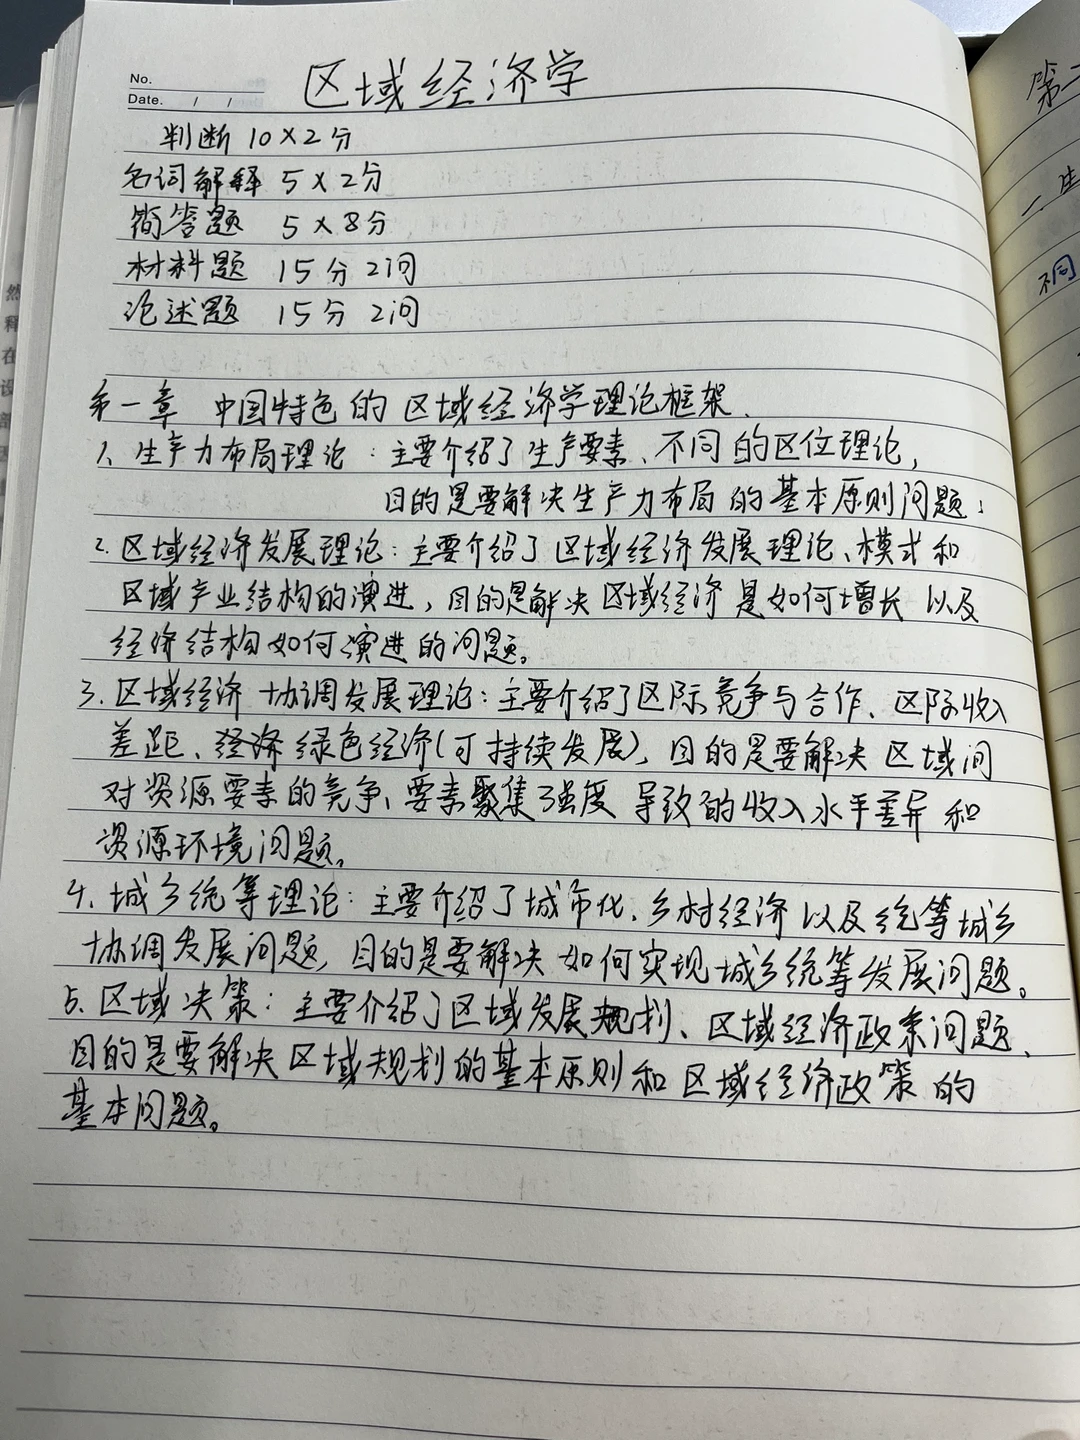 No.
Date. / /
区域经济学
判断 10×2分
名词解释 5×2分
简答题 5×8分
材料题 15分 2问
论述题 15分 2问
第一章 中国特色的区域经济学理论框架.
1、生产力布局理论：主要介绍了生产要素、不同的区位理论，
目的是要解决生产力布局的基本原则问题；
2.区域经济发展理论：主要介绍了区域经济发展理论、模式和
区域产业结构的演进，目的是解决区域经济是如何增长以及
经济结构如何演进的问题。
3.区域经济协调发展理论：主要介绍了区际竞争与合作、区际收入
差距、绿色经济(可持续发展)，目的是要解决区域间
对资源要素的竞争、要素聚集强度导致的收入水平差异和
资源环境问题。
4.城乡统筹理论：主要介绍了城市化、乡村经济以及统筹城乡
协调发展问题，目的是要解决如何实现城乡统筹发展问题。
5.区域决策：主要介绍了区域发展规划、区域经济政策问题、
目的是要解决区域规划的基本原则和区域经济政策的
基本问题。
第二
一 生
不同
然
释
在
设